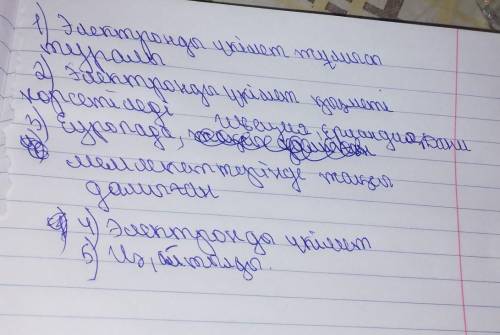 1) Электронды үкімет тұлғасы
туралы
2) Электронды үкімет қызметі
көрсетіледі
3) Еуропада, Швеция, Ирландия, Дания
мемлекеттерінде жақсы
дамыған
4) Электронды үкімет
5) Иә, айтылды.